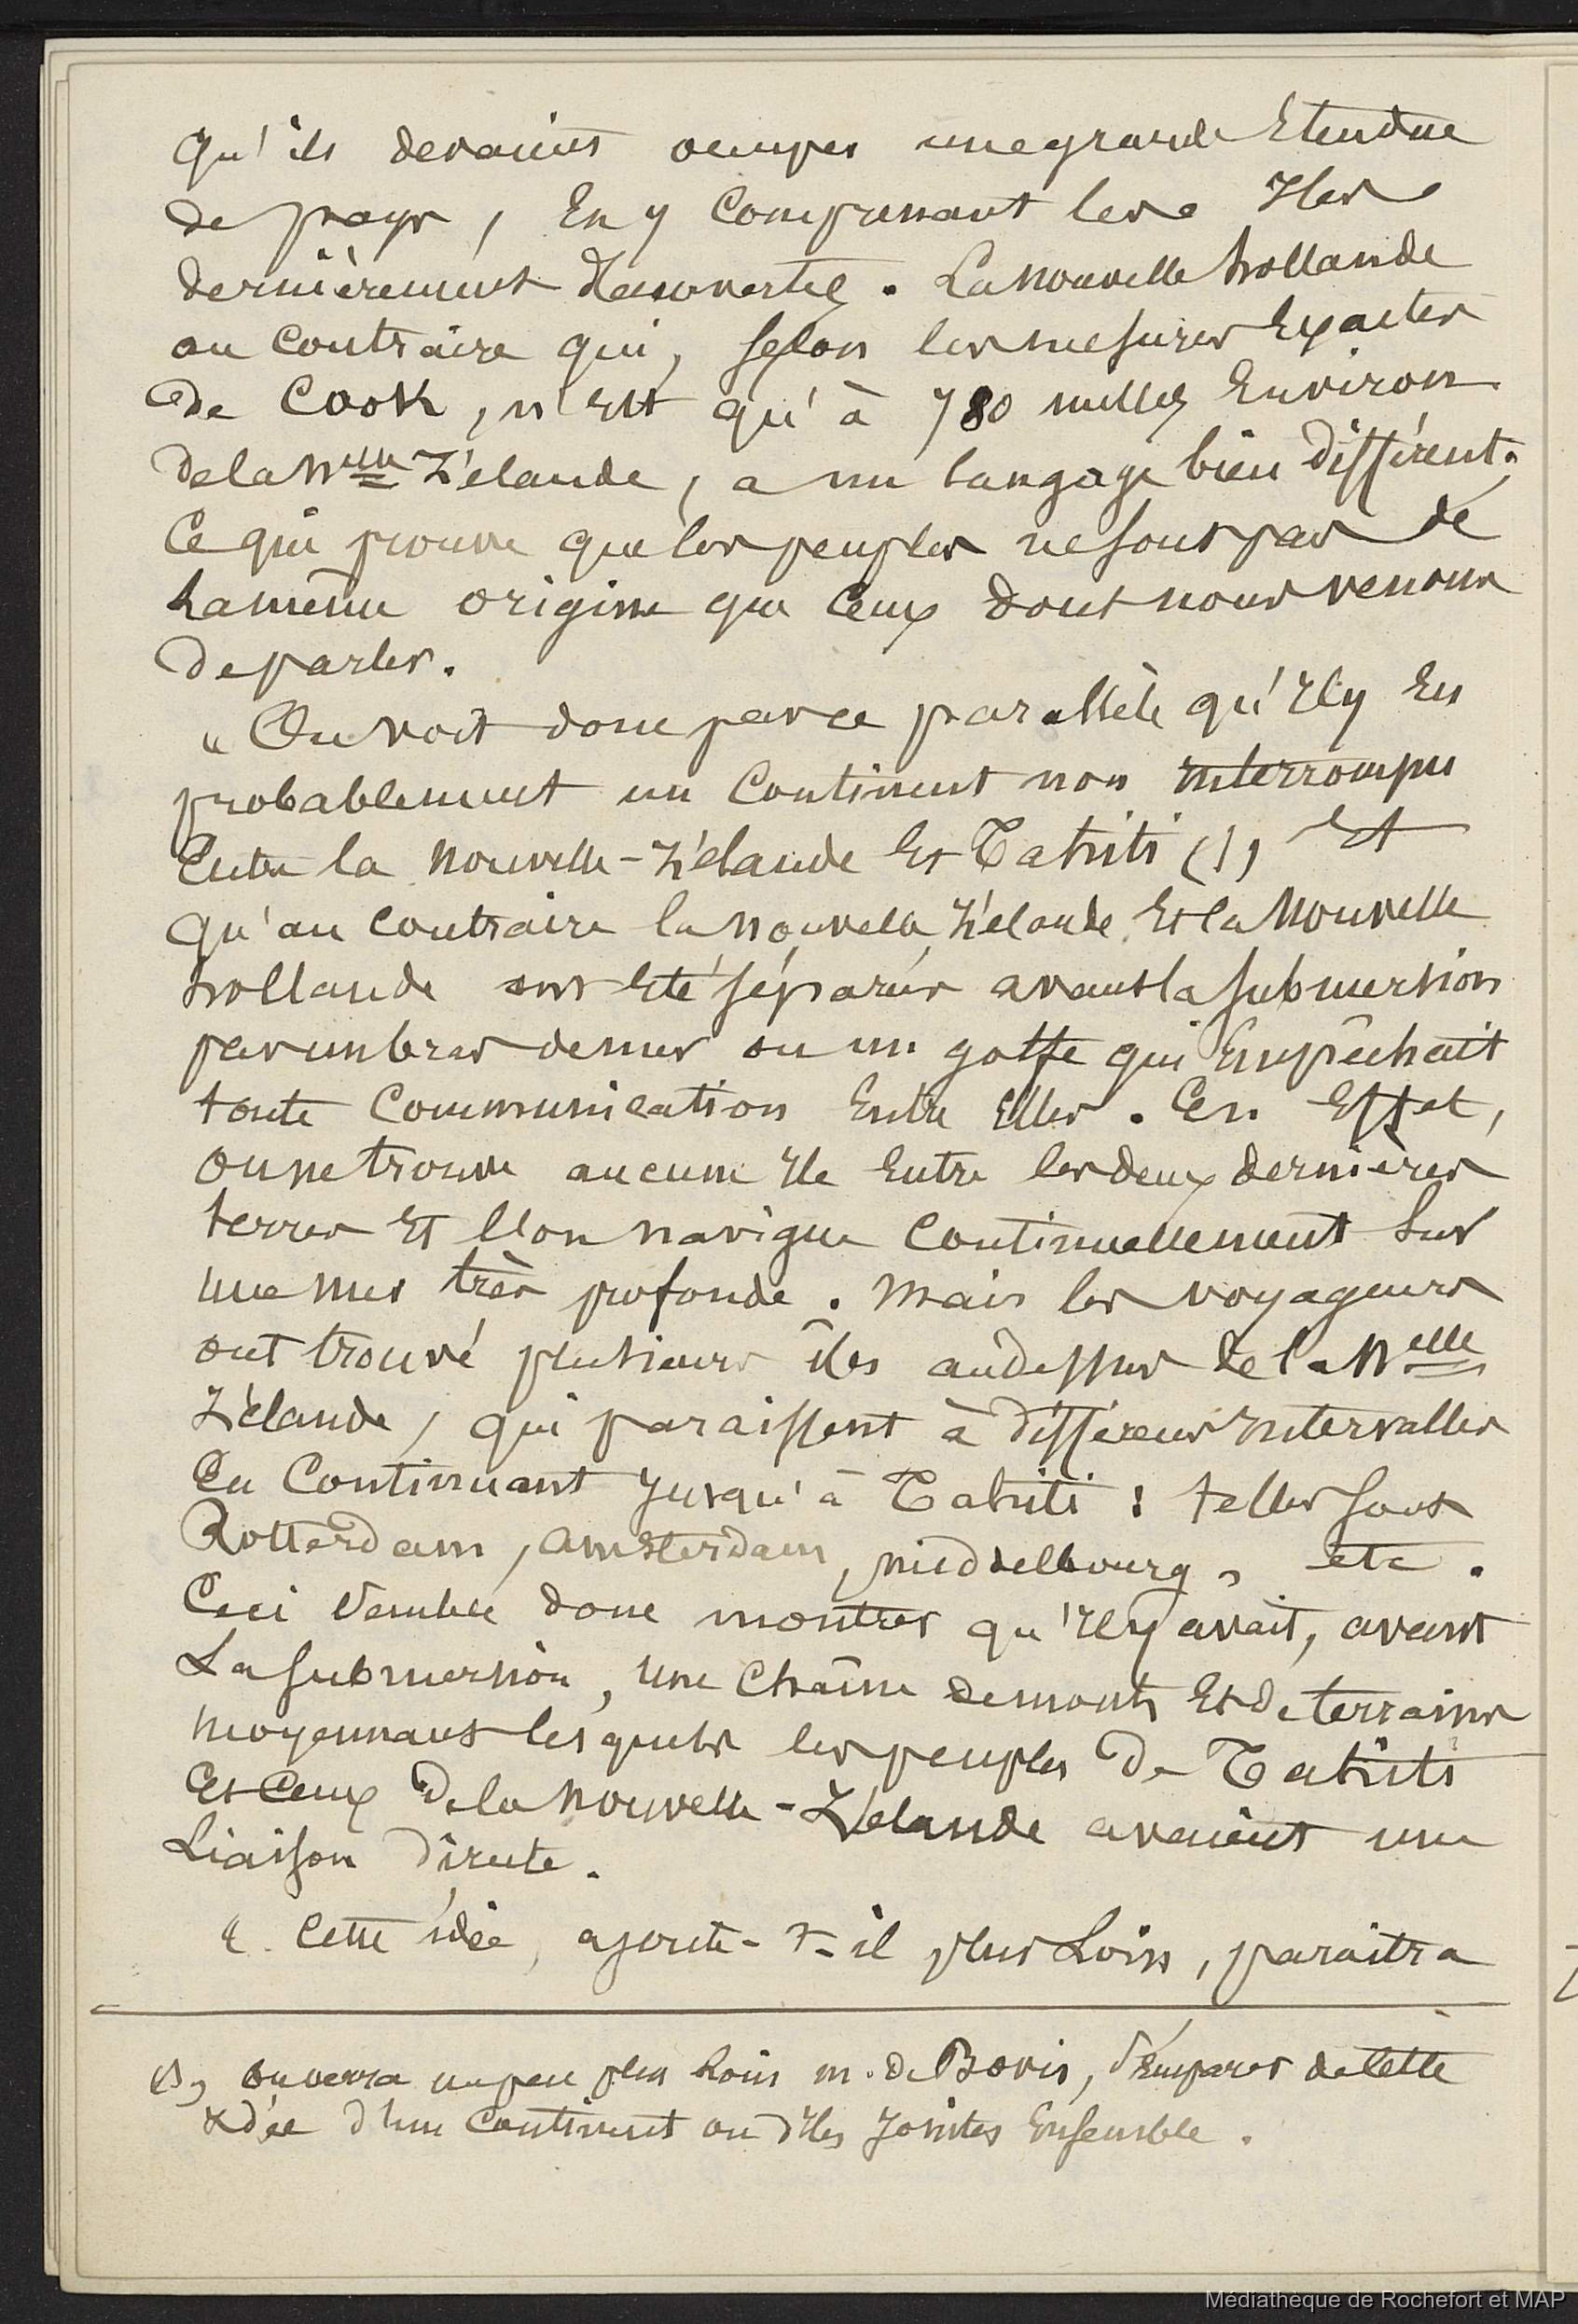 qu'ils devaient occuper une grande Etendue
de pays, En y Comprenant les Iles
dernièrement découvertes. La Nouvelle hollande
au Contraire qui, selon les mesures Exactes
de Cook, n'Est qu'à 780 milles Environ
de la Nelle Zélande, a un langage bien différent;
Ce qui prouve que les peuples ne sont pas de
la même origine que Ceux dont nous venons
de parler.
"On voit donc par ce parallèle qu'Il y Eut
probablement un Continent non Interrompu
Entre la Nouvelle-Zélande Et Tahiti (1) Et
qu'au Contraire la Nouvelle Zélande Et la Nouvelle
hollande ont Eté séparées avant la submersion
par un bras de mer ou un golfe qui Empêchait
toute Communication Entre Elles. En Effet,
on ne trouve aucune Ile Entre les deux dernières
terres Et l'on navigue Continuellement sur
une mer très profonde. Mais les voyageurs
ont trouvé plusieurs îles audessus de la Nelle
Zélande, qui paraissent à différens Intervalles
En Continuant Jusqu'à Tahiti : telles sont
Rotterdam, Amsterdam, middelbourg, etc.
Ceci semble donc montrer qu'Il y avait, avant
La submersion, une Chaîne de monts Et de terrains
moyennant lesquels les peuples de Tahiti
Et Ceux de la Nouvelle-Zélande avaient une
Liaison directe.
" Cette idée, ajoute-t-il plus Loin, paraîtra
(1) On verra un peu plus Loin m. de Bovis, s'Emparer de Cette
Idée d'un Continent ou d'Iles Jointes Ensemble.
Médiathèque de Rochefort et MAP